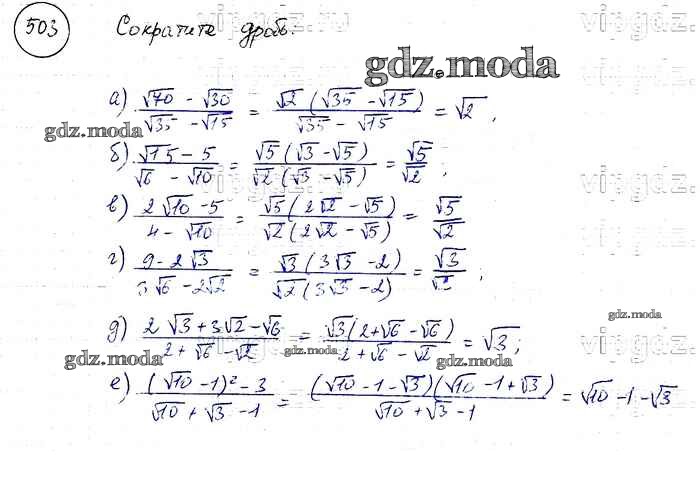 503 Сократите дробь:
vipgdz.ru
gdz.moda
а) (√70 - √30)/(√35 - √15) = √2(√35 - √15)/(√35 - √15) = √2,
gdz.moda
б) (√15 - 5)/(√6 - √10) = √5(√3 - √5)/(√2(√3 - √5)) = √5/√2;
vipgdz.ru
в) (2√10 - 5)/(4 - √10) = √5(2√2 - √5)/(√2(2√2 - √5)) = √5/√2
г) (9 - 2√3)/(3√6 - 2√2) = √3(3√3 - 2)/(√2(3√3 - 2)) = √3/√2;
gdz.moda
д) (2√3 + 3√2 - √6)/(2 + √6 - √2) = √3(2 + √6 - √6)/(2 + √6 - √2) = √3;
gdz.moda gdz.moda gdz.moda
е) ((√10 - 1)² - 3)/(√10 + √3 - 1) = (√10 - 1 - √3)(√10 - 1 + √3)/(√10 + √3 - 1) = √10 - 1 - √3